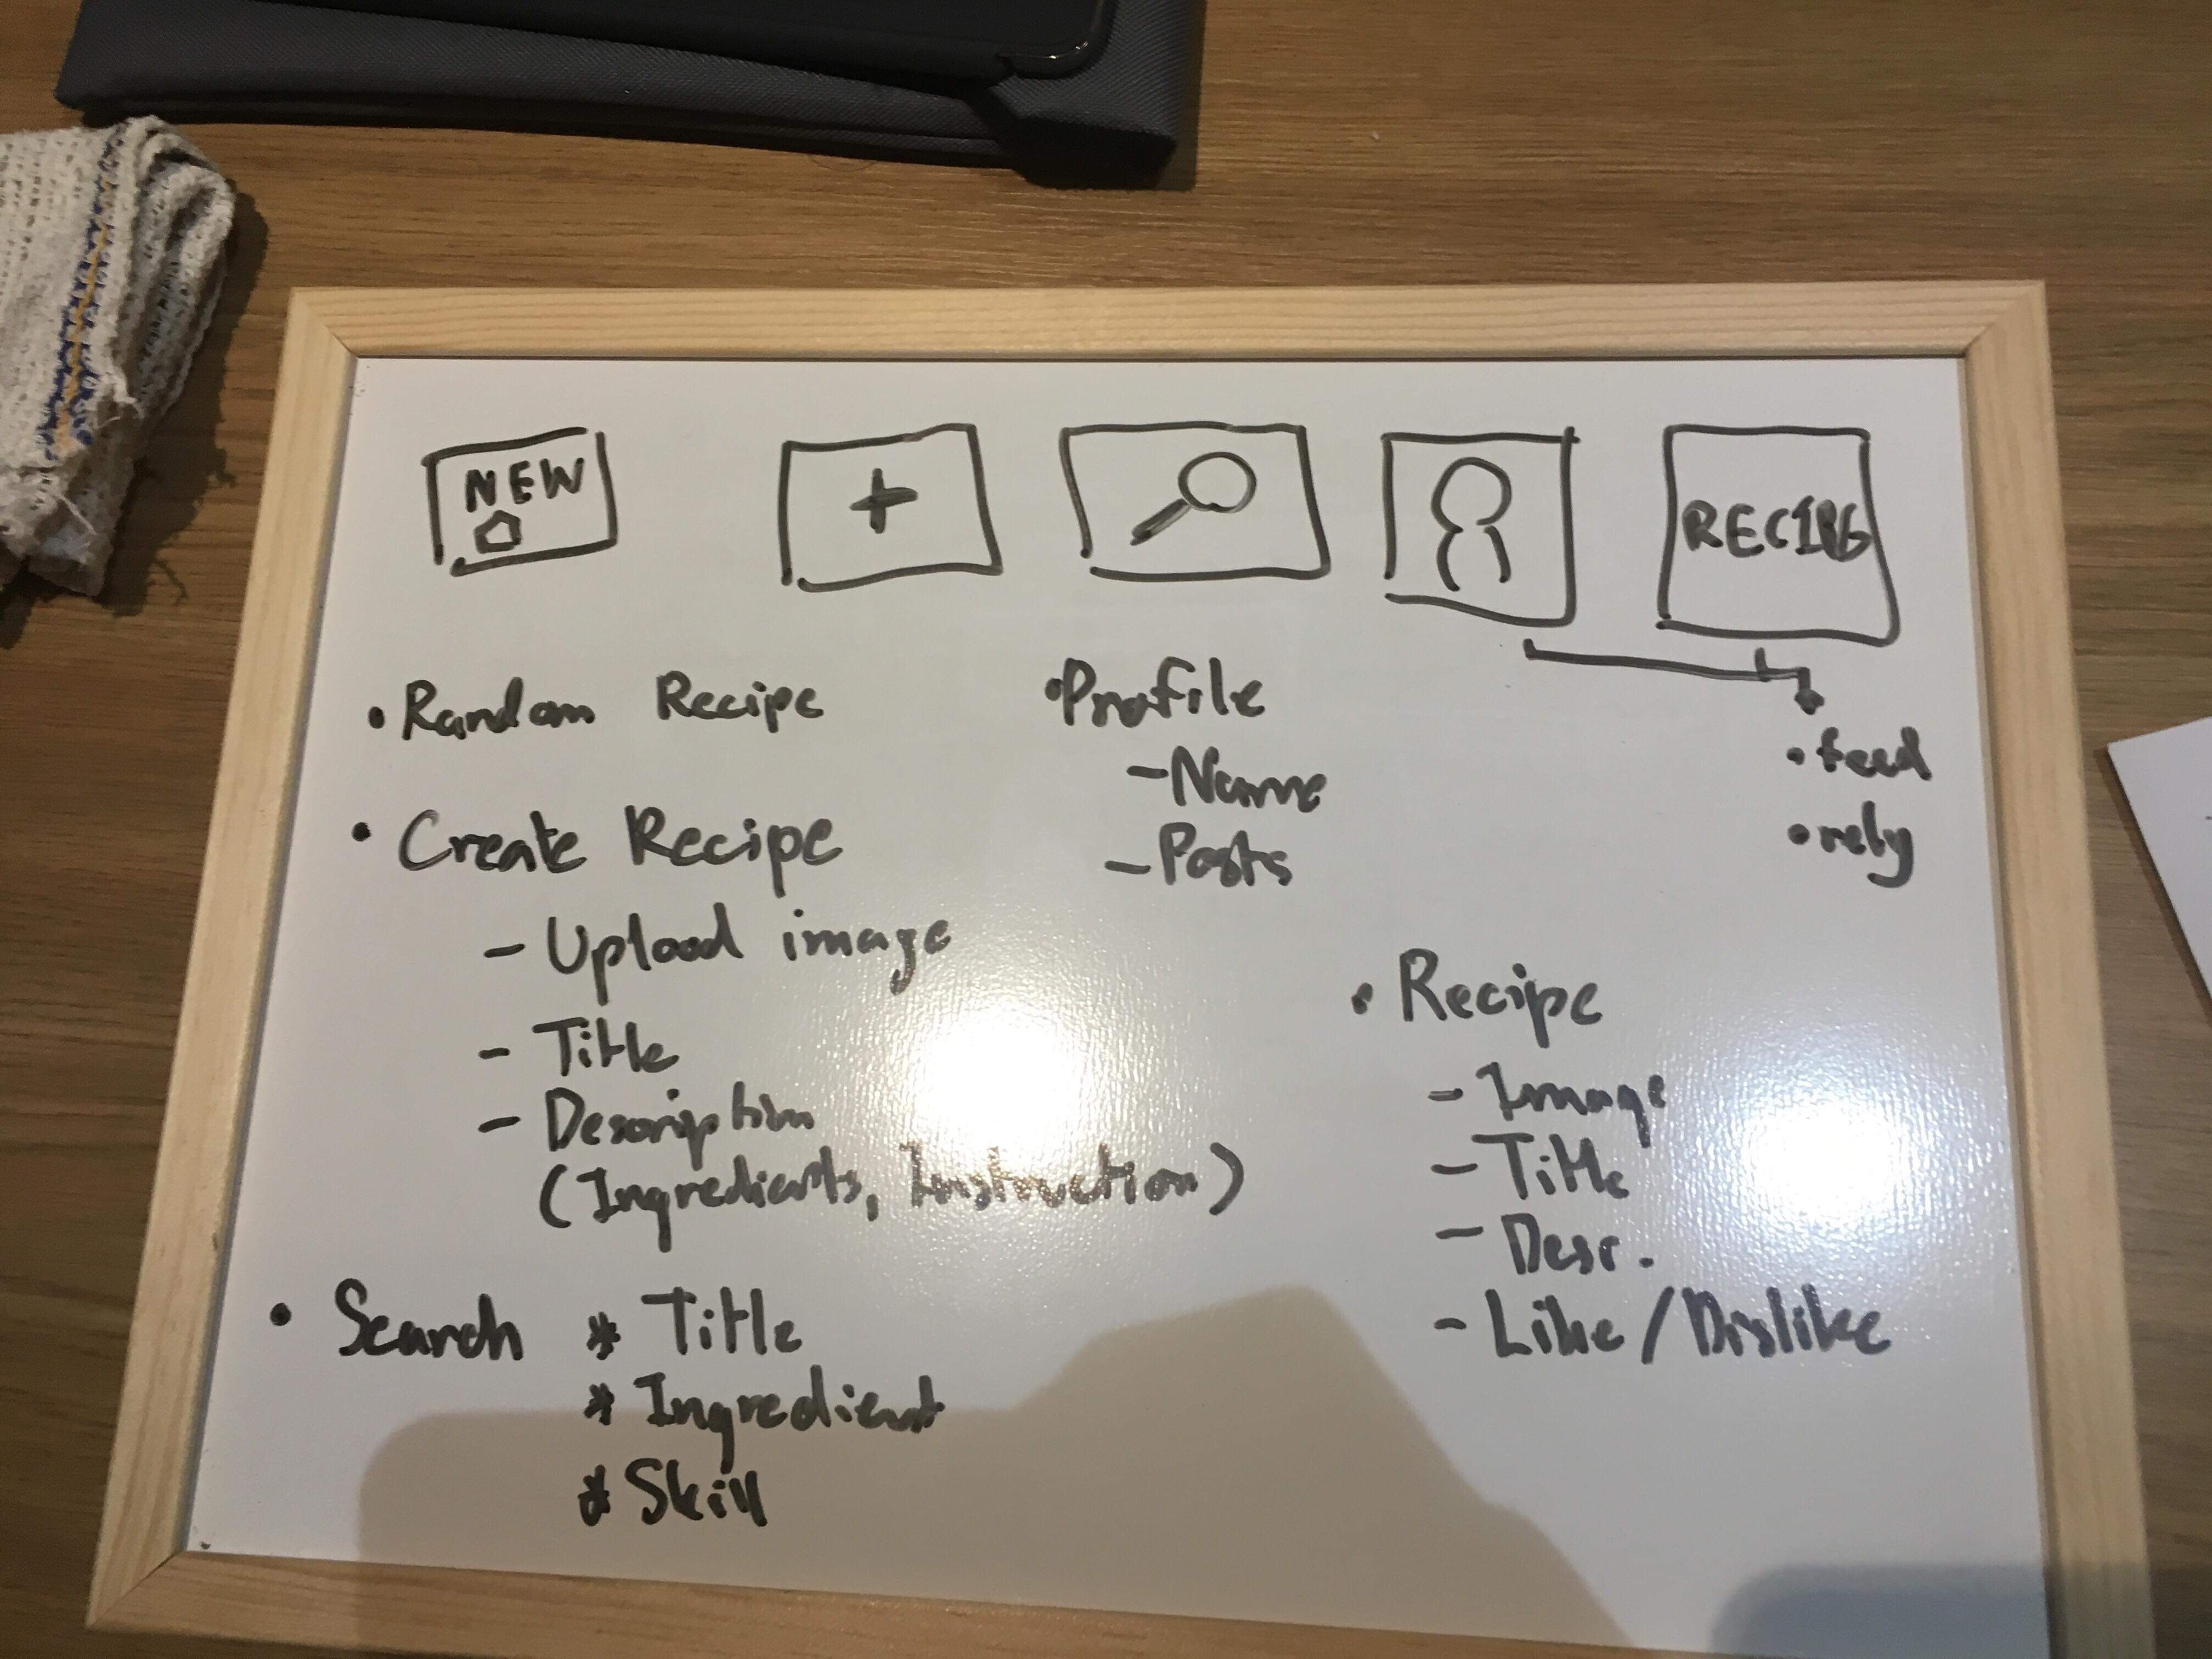 NEW
+
RECIPE
• Random Recipe
• Create Recipe
- Upload image
- Title
- Description
(Ingredients, Instruction)
• Search * Title
* Ingredient
* Skill
• Profile
- Name
- Posts
• feed
• rely
• Recipe
- Image
- Title
- Desr.
- Like / Dislike